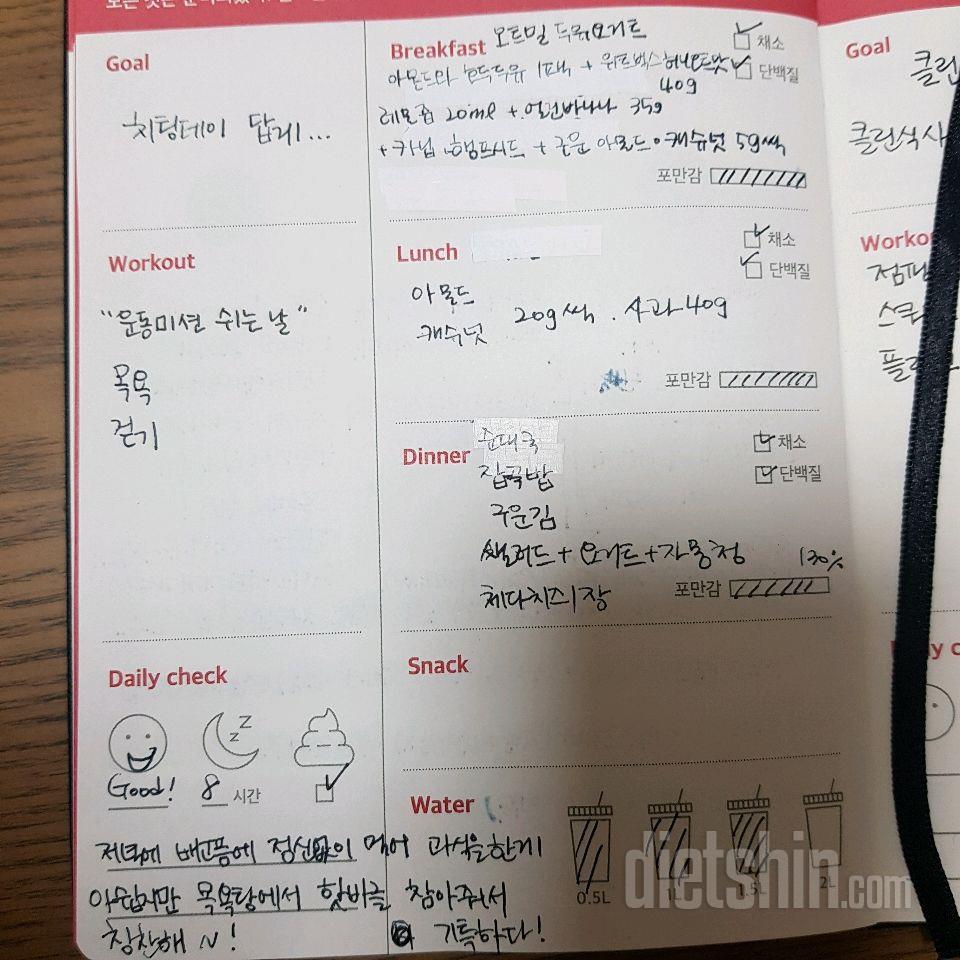 Goal
치팅데이 답게...
Workout
"운동미션 쉬는 날"
목욕
걷기
Daily check
Good!
8 시간
Breakfast 오트밀 두유요거트
채소
아몬드와 호두두유 1팩 + 위트빅스
단백질
40g
레몬즙 20ml + 얼린바나나 35g
+ 카닙, 햄프시드 + 구운 아몬드·캐슈넛 5g씩
포만감
Lunch
채소
단백질
아몬드
캐슈넛 20g씩. 사과 40g
포만감
Dinner 순대국
채소
잡곡밥
단백질
구운김
샐러드 + 요거트 + 자몽청 130%
체다치즈 1장
포만감
Snack
Water
0.5L 1L 1.5L 2L
저녁에 배고픔에 정신없이 먹어 과식을 한게
아쉽지만 목욕탕에서 핫바를 참아줘서
칭찬해~! 기특하다!
Goal
클린
클린식사
Workou
점핑
스쿼
플
y c
dietshin.com